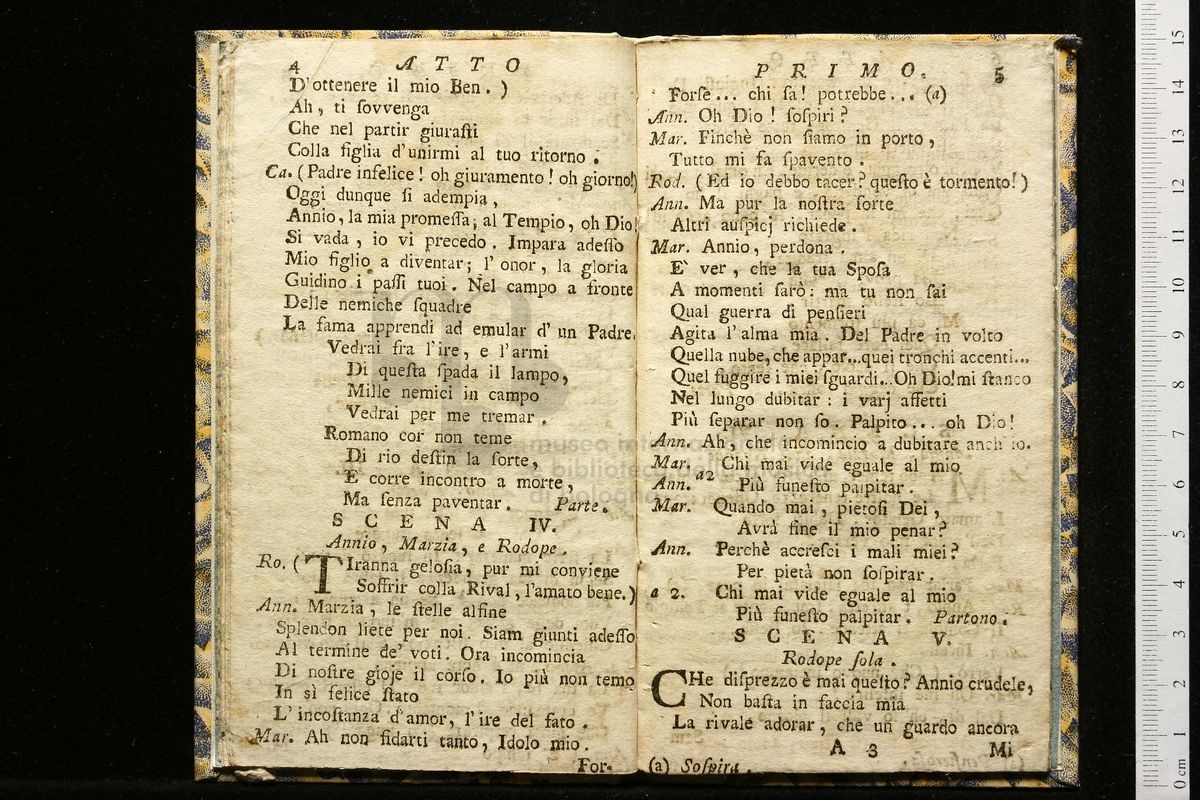 4 ATTO
D'ottenere il mio Ben. )
Ah, ti ſovvenga
Che nel partir giuraſti
Colla figlia d'unirmi al tuo ritorno.
Ca. (Padre infelice! oh giuramento! oh giorno!)
Oggi dunque ſi adempia,
Annio, la mia promeſſa; al Tempio, oh Dio!
Si vada, io vi precedo. Impara adeſſo
Mio figlio a diventar; l'onor, la gloria
Guidino i paſſi tuoi. Nel campo a fronte
Delle nemiche ſquadre
La fama apprendi ad emular d'un Padre.
Vedrai fra l'ire, e l'armi
Di queſta ſpada il lampo,
Mille nemici in campo
Vedrai per me tremar.
Romano cor non teme
Di rio deſtin la ſorte,
E corre incontro a morte,
Ma ſenza paventar. Parte.
SCENA IV.
Annio, Marzia, e Rodope.
Ro. ( TIranna geloſia, pur mi conviene
Soffrir colla Rival, l'amato bene.)
Ann. Marzia, le ſtelle alfine
Splendon liete per noi. Siam giunti adeſſo
Al termine de' voti. Ora incomincia
Di noſtre gioje il corſo. Io più non temo
In sì felice ſtato
L'incoſtanza d'amor, l'ire del fato.
Mar. Ah non fidarti tanto, Idolo mio.
For-
PRIMO. 5
Forſe... chi ſa! potrebbe... (a)
Ann. Oh Dio! ſoſpiri?
Mar. Finchè non ſiamo in porto,
Tutto mi fa ſpavento.
Rod. (Ed io debbo tacer? queſto è tormento!)
Ann. Ma pur la noſtra ſorte
Altri auſpicj richiede.
Mar. Annio, perdona.
E' ver, che la tua Spoſa
A momenti ſarò: ma tu non ſai
Qual guerra di penſieri
Agita l'alma mia. Del Padre in volto
Quella nube, che appar...quei tronchi accenti...
Quel fuggire i miei ſguardi...Oh Dio! mi ſtanco
Nel lungo dubitar: i varj affetti
Più ſeparar non ſo. Palpito... oh Dio!
Ann. Ah, che incomincio a dubitare anch'io.
Mar. Ann. a2 Chi mai vide eguale al mio
Più funeſto palpitar.
Mar. Quando mai, pietoſi Dei,
Avrà fine il mio penar?
Ann. Perchè accreſci i mali miei?
Per pietà non ſoſpirar.
a 2. Chi mai vide eguale al mio
Più funeſto palpitar. Partono.
SCENA V.
Rodope ſola.
CHe diſprezzo è mai queſto? Annio crudele,
Non baſta in faccia mia
La rivale adorar, che un guardo ancora
A 3 Mi
(a) Soſpira.